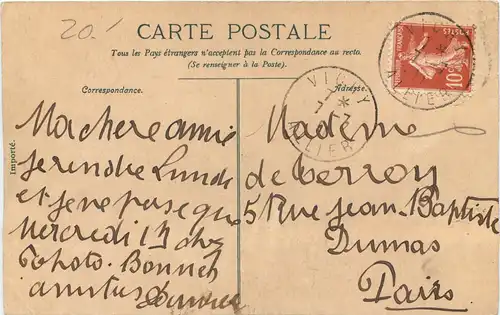 20.
CARTE POSTALE
Tous les Pays étrangers n'acceptent pas la Correspondance au recto.
(Se renseigner à la Poste.)
Correspondance.
Adresse.
Importé.
Ma chere amie
je rendre Lundi
et je ne passe que
Mercredi 13 chez
Photo. Bonnet
amities
Madame
de Terroy
5 Rue Jean-Baptiste
Dumas
Paris
VICHY
ALLIER
10c